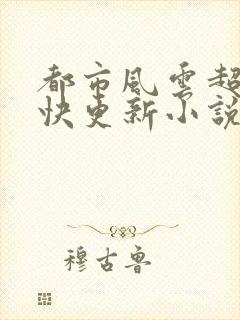 都市風雲超
快更新小說
穆古魯